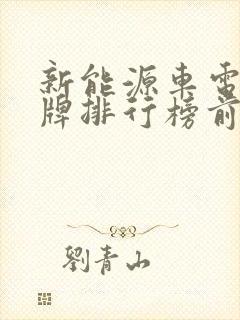 新能源車電
牌排行榜前
劉青山